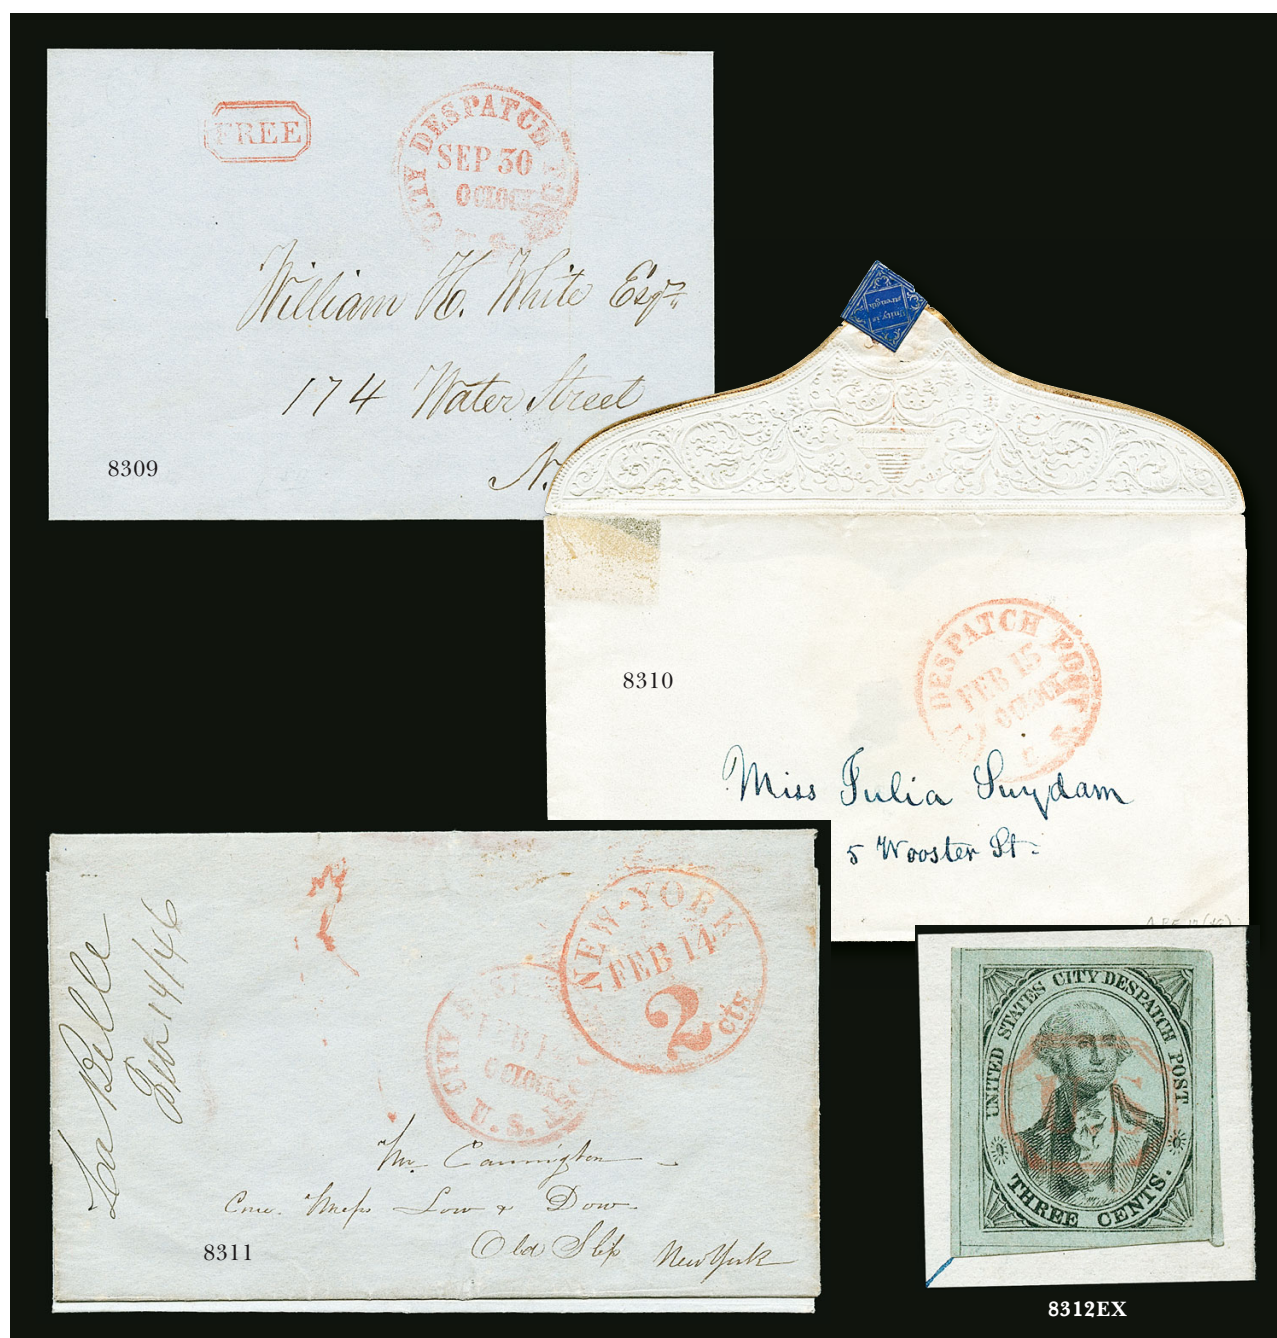 FREE
CITY DESPATCH POST
SEP 30
O'CLOCK
William H. White Esqr
174 Water Street
N.
8309
Unity is
strength
DESPATCH POST
FEB 15
O'CLOCK
U. S.
8310
Miss Julia Suydam
5 Wooster St.
La Belle
Feb 14/46
NEW-YORK
FEB 14
2 cts
CITY DESPATCH POST
FEB
O'CLOCK
U. S.
Mr. Cannington
Care Messrs Low & Dow
Old Slip New York
8311
UNITED STATES CITY DESPATCH POST.
U.S
THREE CENTS.
8312EX